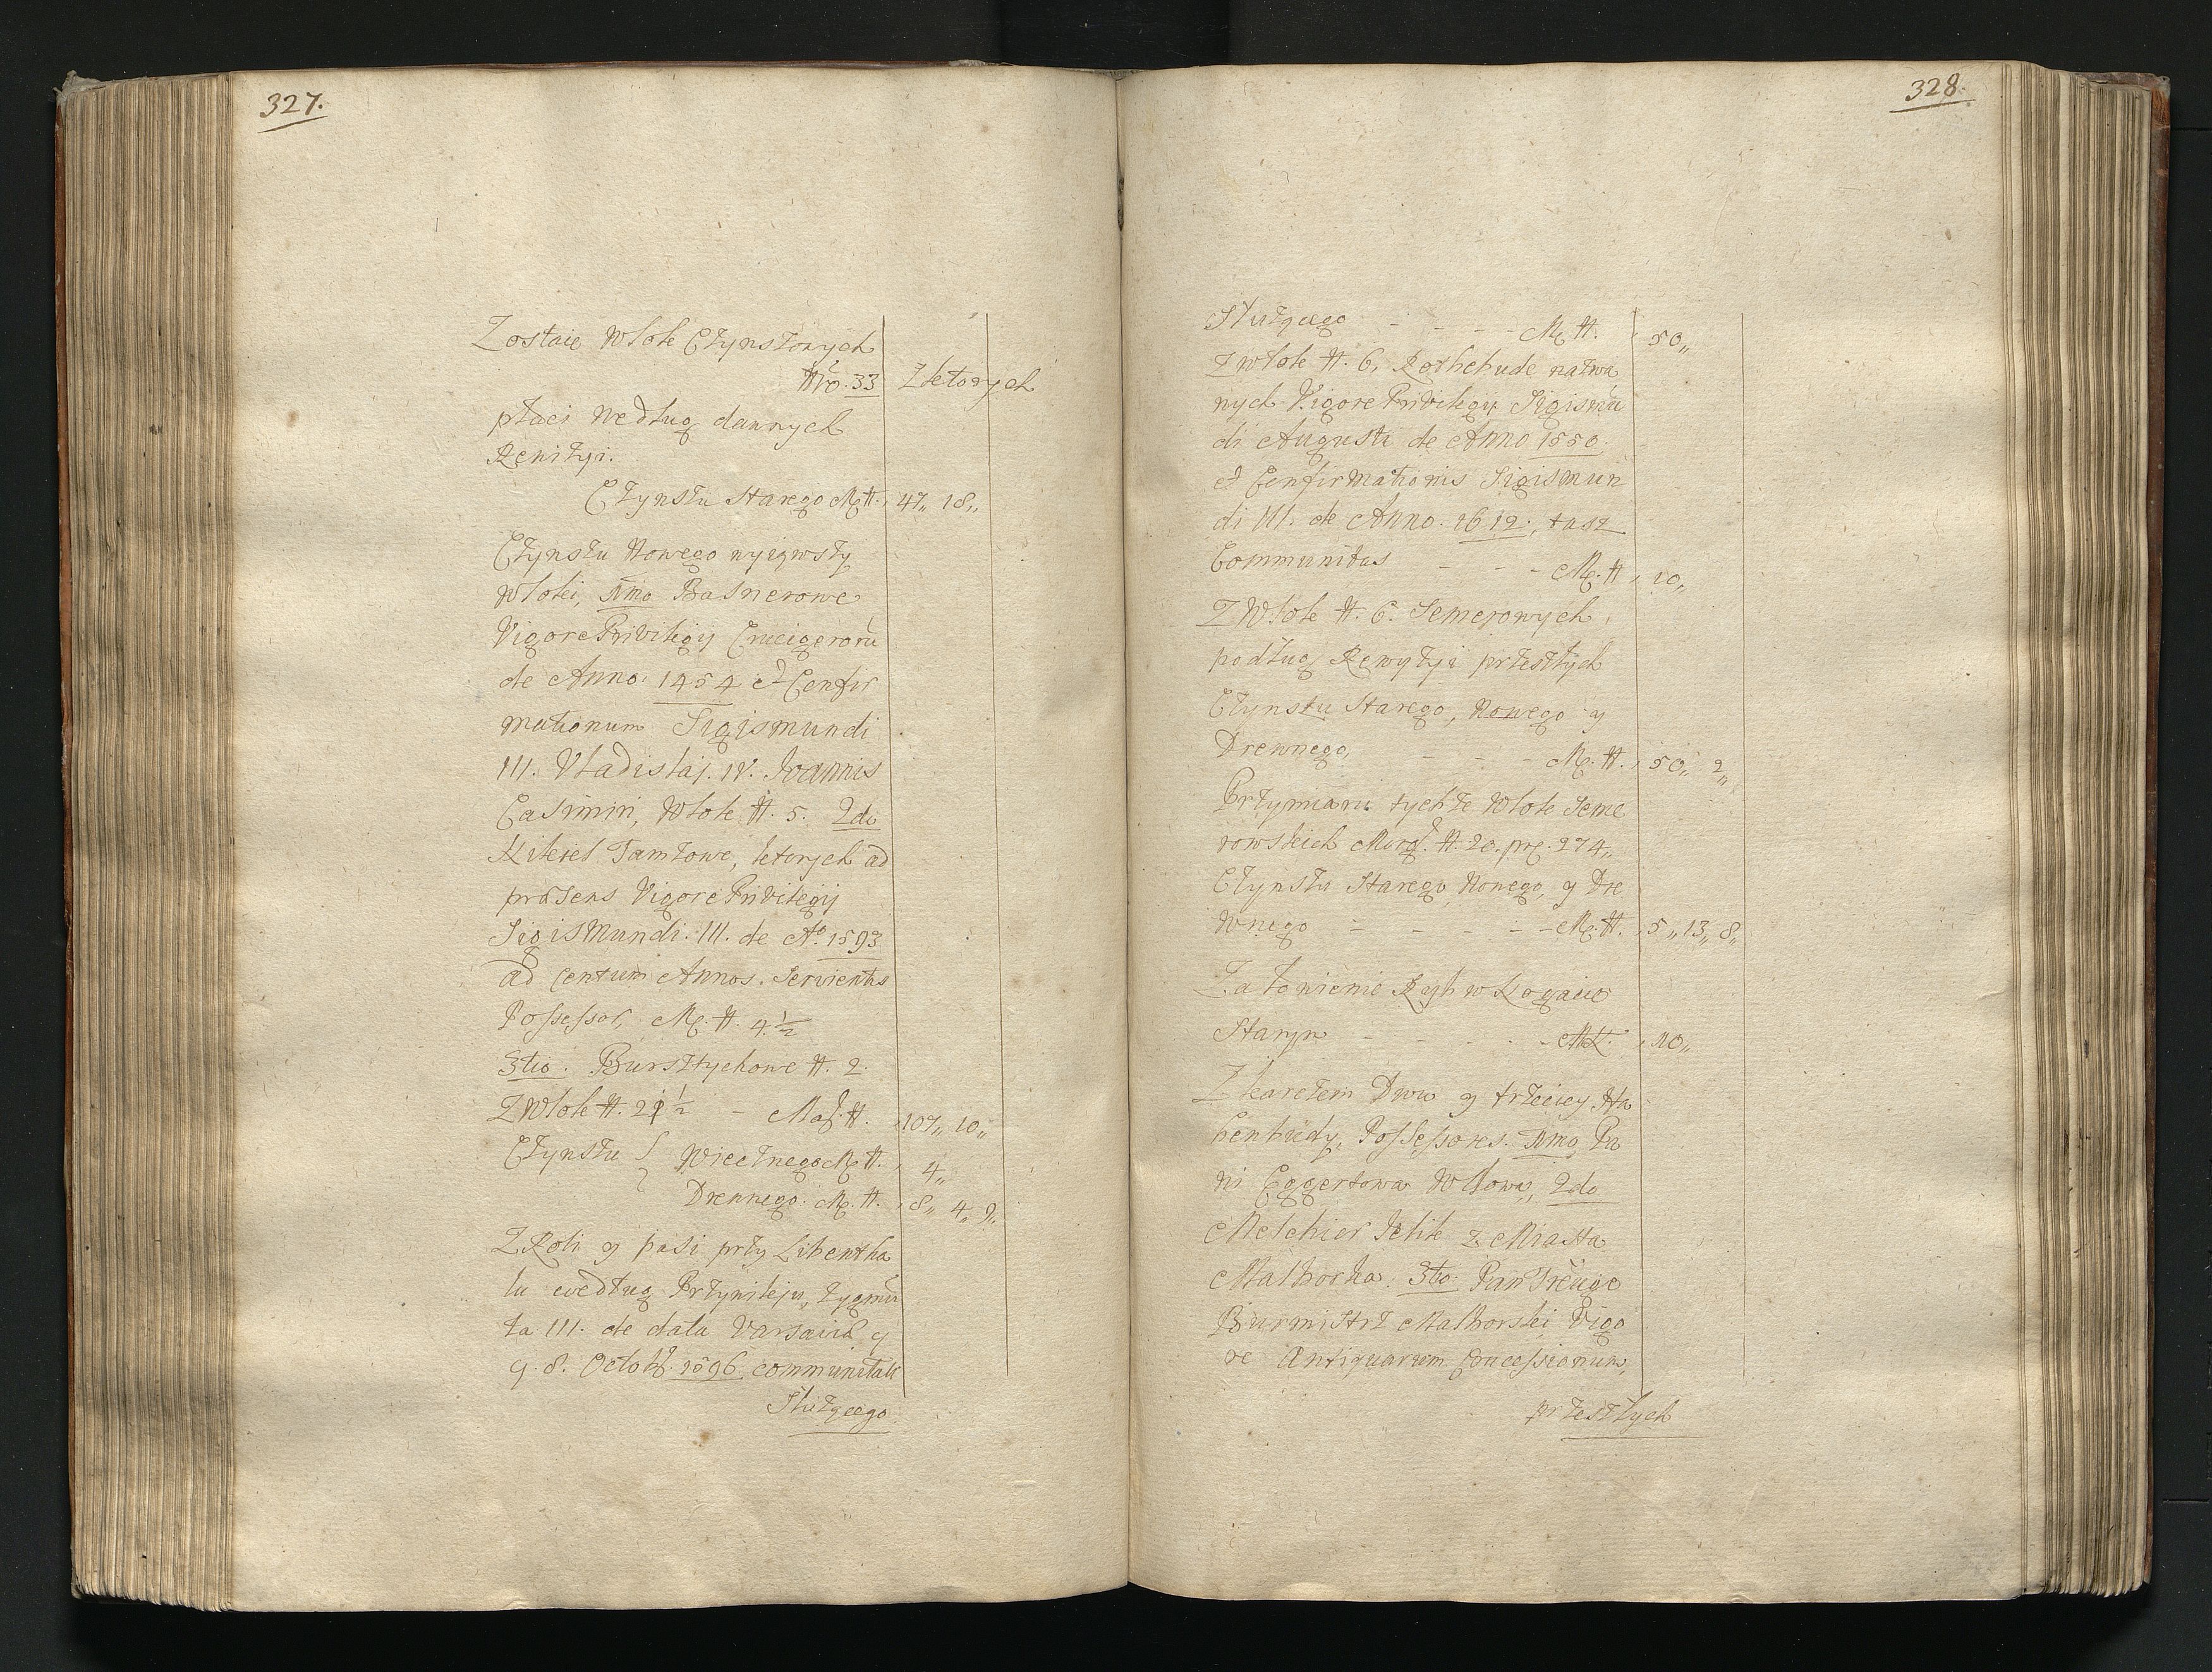 327.
Zostaie Włok Czynszowych
Nro. 33 Z ktorych
płaci według dawnych
Rewizyi.
Czynszu Starego M. #. 47,, 18,,
Czynszu Nowego wyiąwszy
Włoki, 1mo Basnerowe
Vigore Privilegij Crucigerorū
de Anno. 1454 et Confir
mationum Sigismundi
III. Vladislaj. IV. Joannis
Casimiri, Włok #. 5. 2do
Tamżowe, ktorych ad
præsens Vigore Privilegij
Sigismundi. III. de Ao. 1593
ad centum Annos. Servientis
Possessor, M. #. 4 ½
3tio. Bursztychowe #. 2.
Z Włok #. 21 ½ - Mar. #. 107,, 10,,
Czynszu Wiecznego M. #. 4,,
Drewnego. M. #. 8,, 4,, 9,,
Z Roli y pasi przy Libentha
lu według Przywileju, Zygmū
ta III. de data Varsaviæ
8. Octob. 1596. communitati
Służącego
328.
Służącego - - - - M. #. 50,,
Z włok #. 6, Roshebude nazwa
nych Vigore Privilegij Sigismū
di Augusti de Anno 1550.
et Confirmationis Sigismun
di III. de Anno. 1612. tasz
Communitas - - - M. # 10,,
Z Włok #. 6. Semerowych,
podług Rewyzyi przeszłych
Czynszu Starego, Nowego y
Drewnego, - - - M. #. 50,, 2,,
Przymiaru tychże Włok Seme
rowskich Morg. #. 20. prę. 274,,
Czynszu Starego, Nowego, y Dre
wnego - - - - - M. #. 5,, 13,, 8,,
Za łowienie Ryb w Nogacie
Starym - - - - - M#. 10,,
Z karczem Dwu y trzeciey Ha
kenbudy. Possessores. 1mo Pa
ni Eggertowa Wdowa, 2do
Melchior z Miasta
Malborka. 3tio. Pan
Burmistrz Malborski Vigo
re Antiquarum Concessionum,
przeszłych